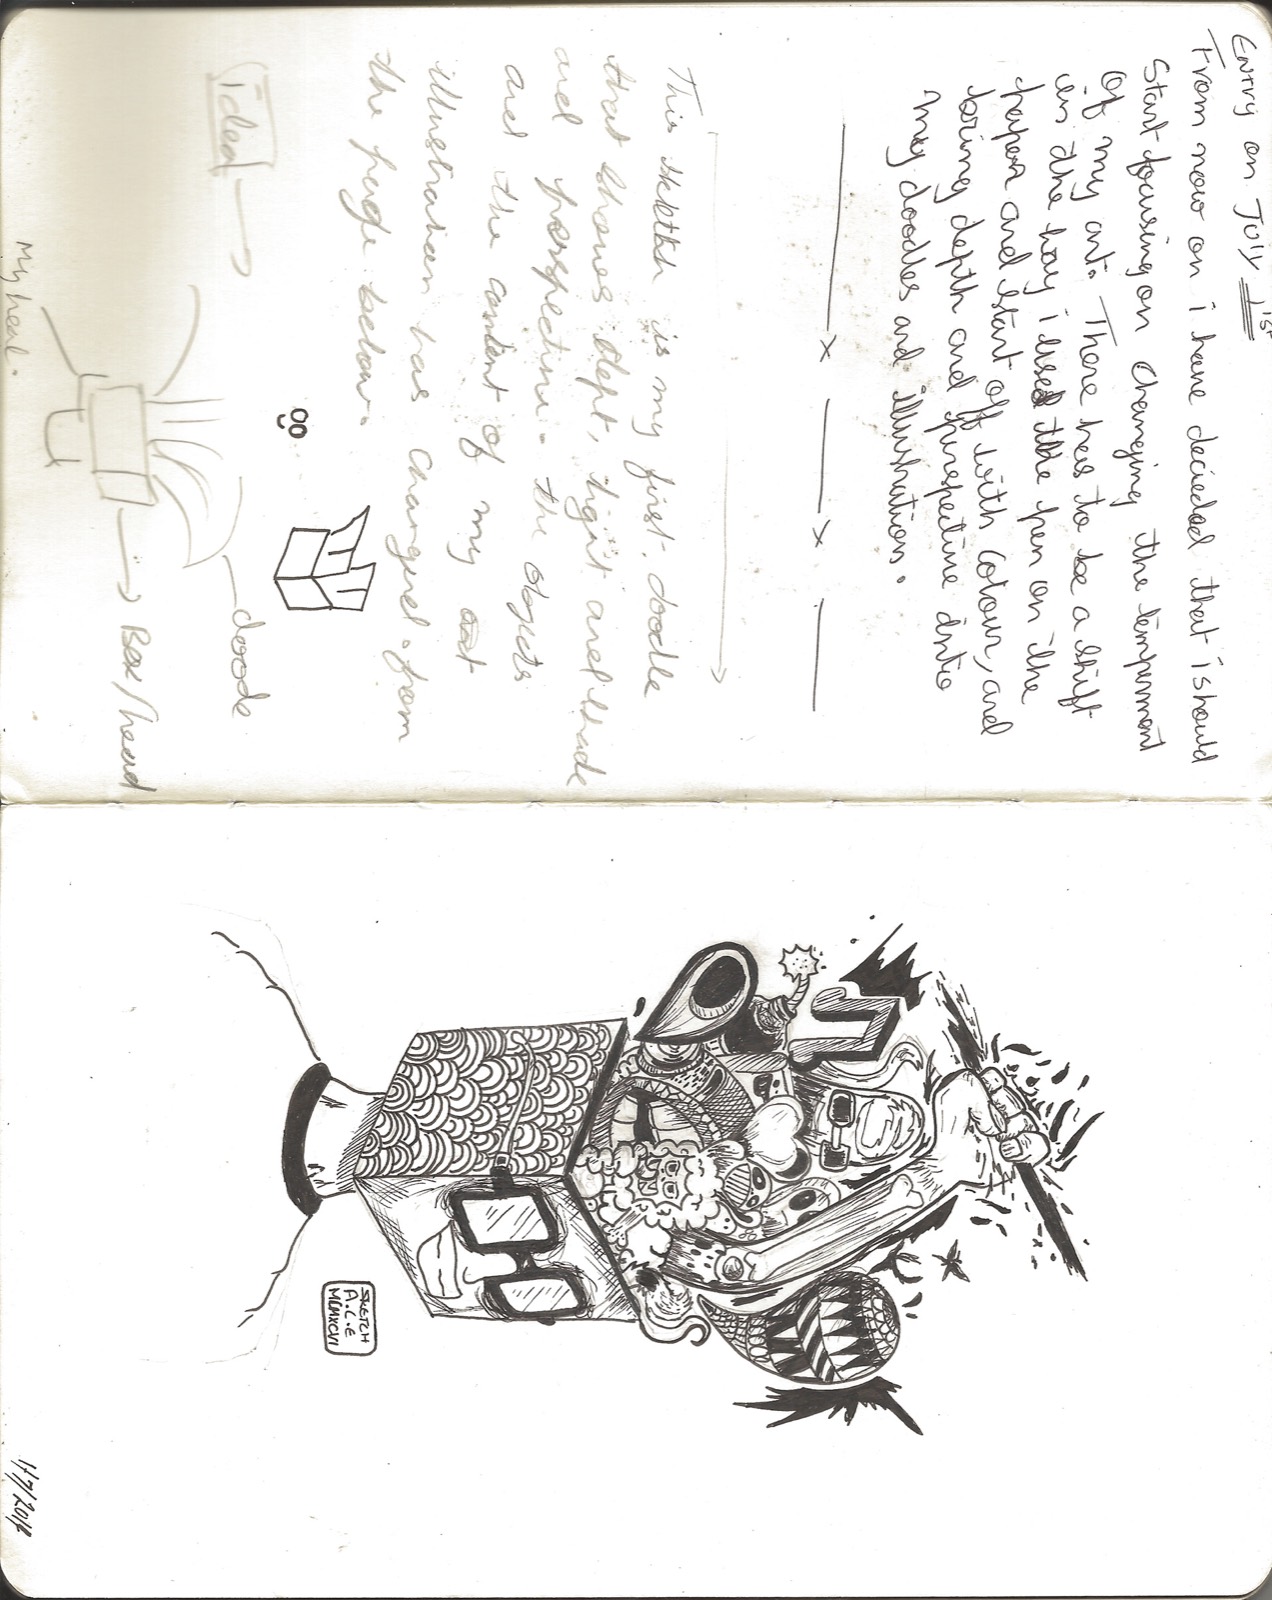 Entry on July 1st
From now on i have decieded that ishould
Start focusing on changing the temperment
of my art. There has to be a shift
in the way i used the pen on the
paper and start off with colour, and
bring depth and perspective into
my doodles and illustration.
This sketch is my first doodle
that shows dept, light and shade
and perspective. the objects
and the content of my art
illustration has changed from
the page below.
idea
doode
Box/head
My head.
SKETCH
A.C.E
MCMXCVI